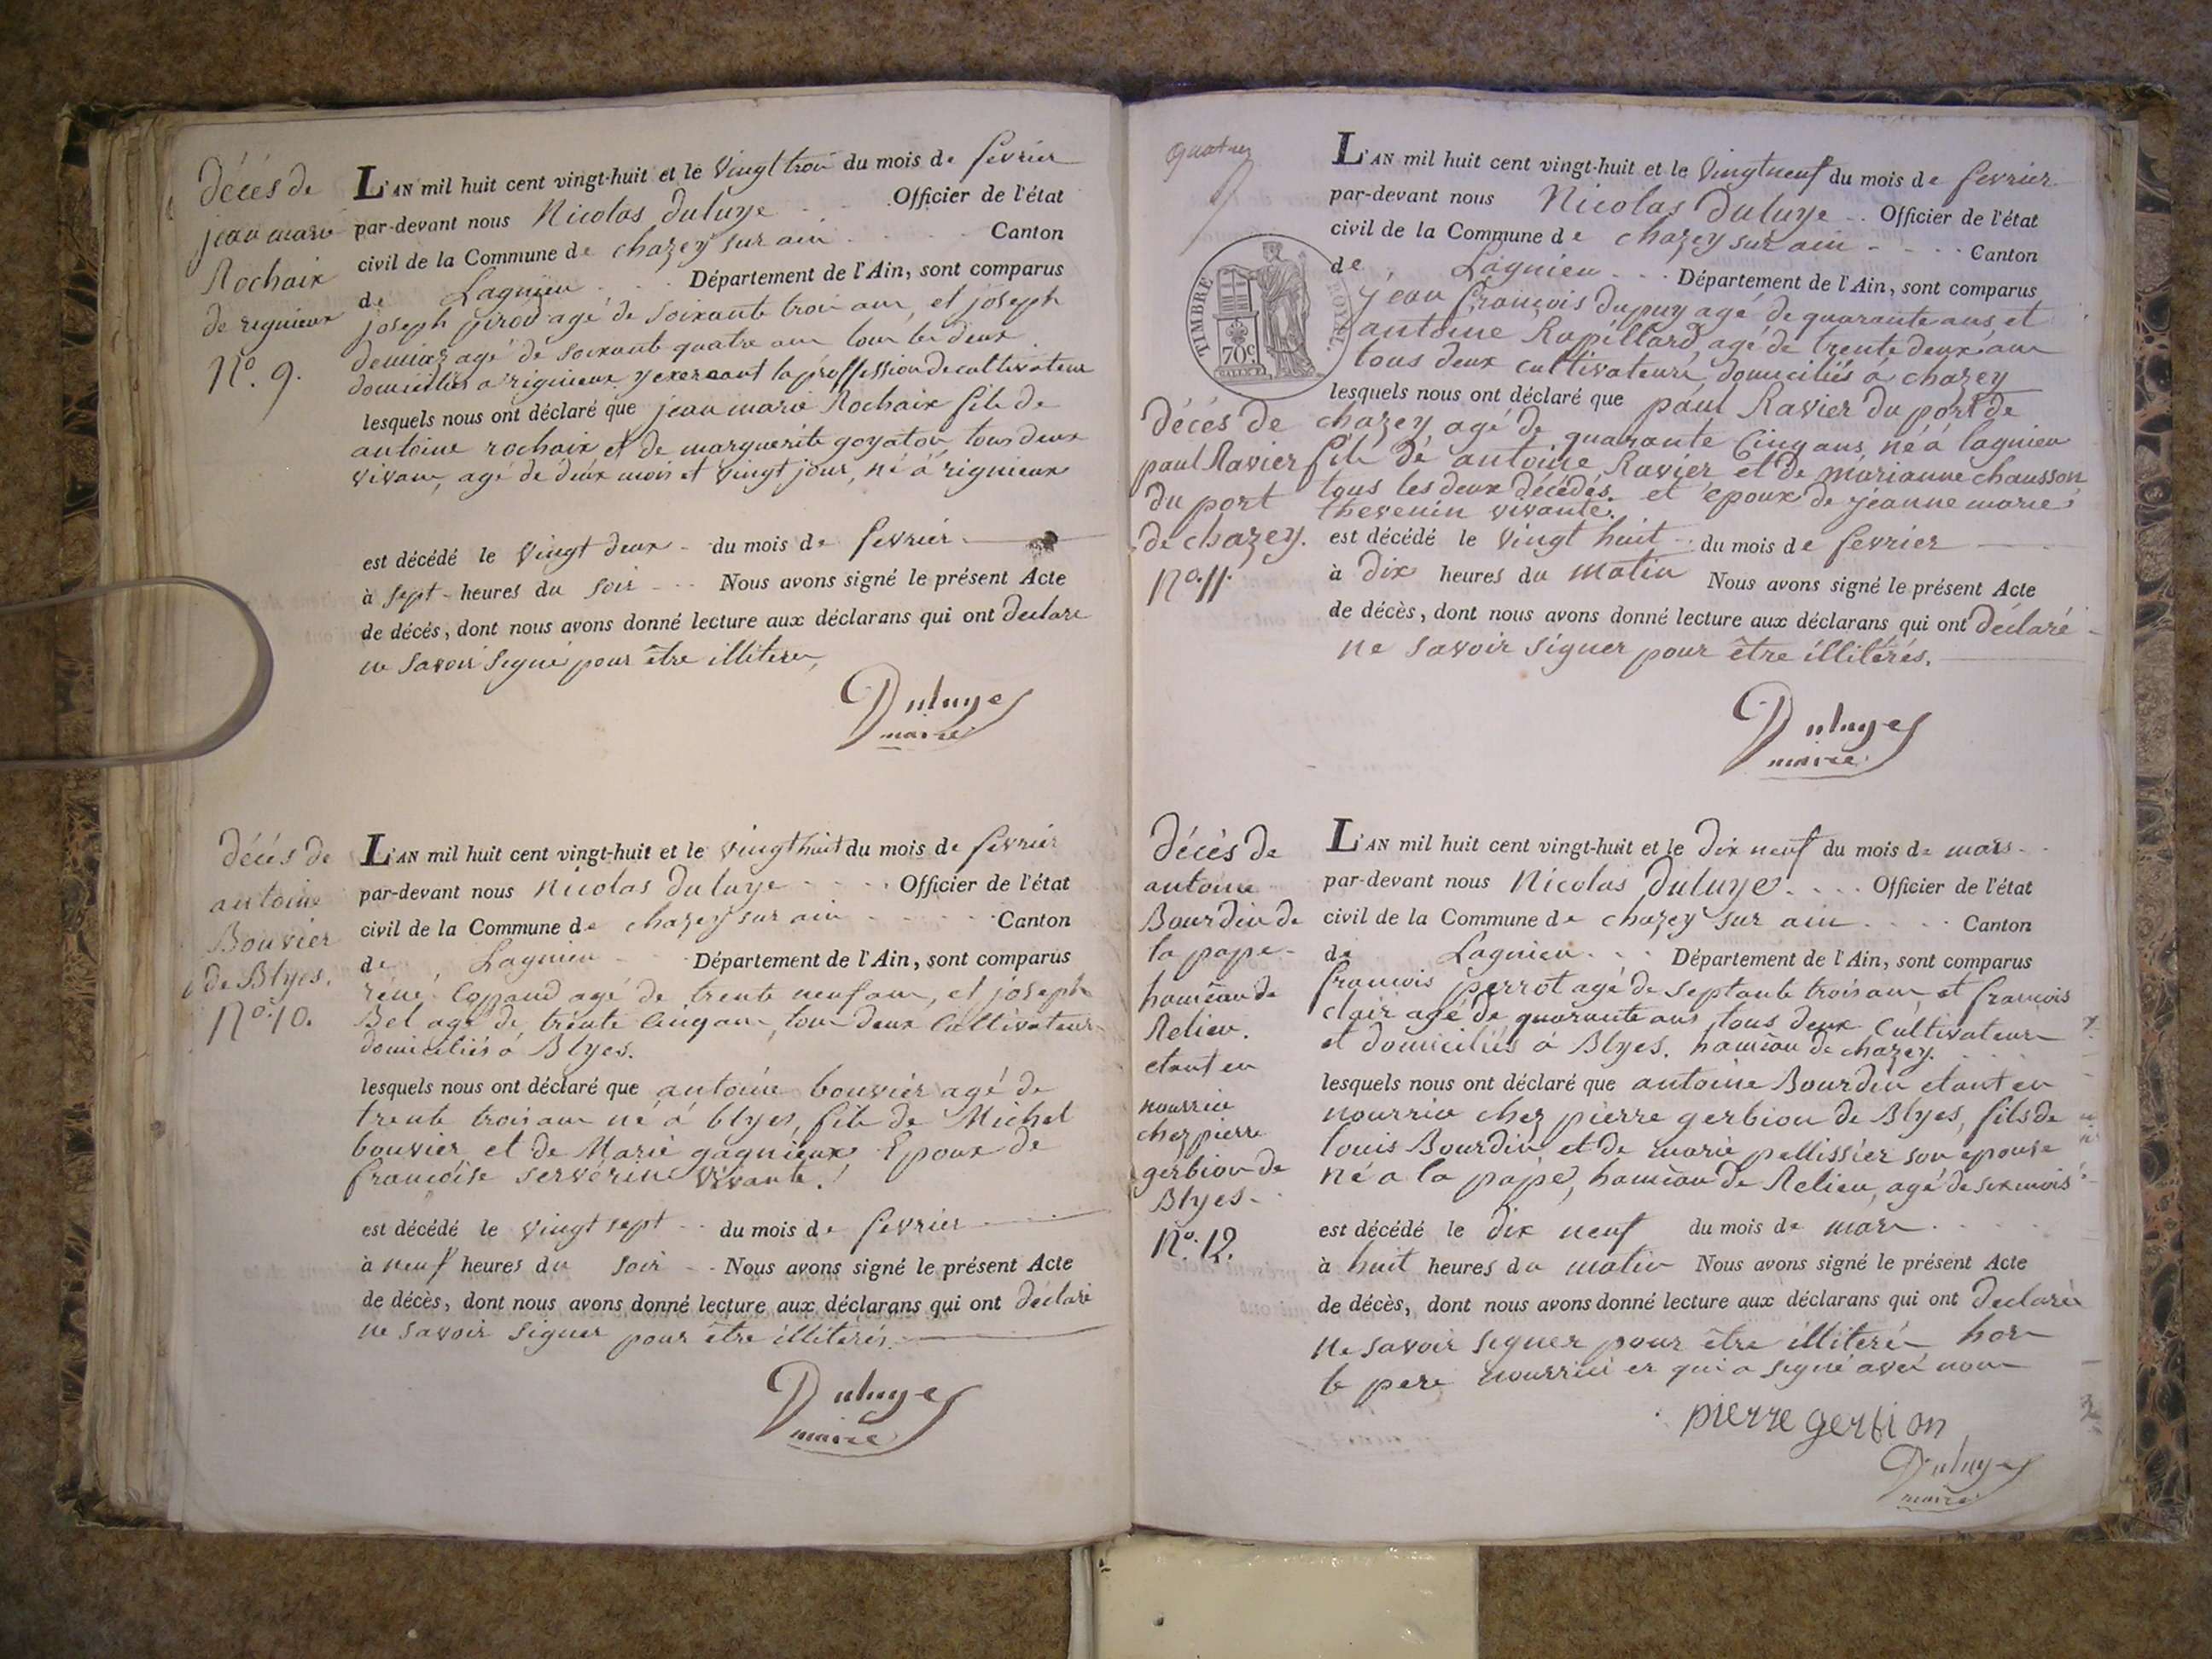 décés de
jean marie
Rochaix
de rignieux
N.º 9.
L'AN mil huit cent vingt-huit et le vingt troi du mois de fevrier
par-devant nous Nicolas Duluye Officier de l'état
civil de la Commune de chazey sur ain Canton
de Lagnieu Département de l'Ain, sont comparus
joseph pirod agé de soixante troi an, et joseph
demiaz agé de soixante quatre an tous les deux
domiciliés a rignieux y exercant la proffession de cultivateur
lesquels nous ont déclaré que jean marie Rochaix fils de
antoine rochaix et de marguerite goyaton tous deux
vivans, agé de deux mois et vingt jour, né á rignieux
est décédé le vingt deux du mois de fevrier
à sept heures du soir Nous avons signé le présent Acte
de décés, dont nous avons donné lecture aux déclarans qui ont declare
ne savoir signé pour être illiteré,
Duluye
maire
décés de
antoine
Bouvier
de Blyes.
N.º 10.
L'AN mil huit cent vingt-huit et le vingt huit du mois de fevrier
par-devant nous Nicolas Duluye Officier de l'état
civil de la Commune de chazey sur ain Canton
de Lagnieu Département de l'Ain, sont comparus
réné Copand agé de trente neuf an, et joseph
Bel agé de trente cinq an, tou deux Cultivateur
domiciliés á Blyes.
lesquels nous ont déclaré que antoine bouvier agé de
trente trois an né á blyes, fils de Michel
bouvier et de Marie gagnieux Epoux de
francoise serverin vivante.
est décédé le vingt sept du mois de fevrier
à neuf heures du soir Nous avons signé le présent Acte
de décès, dont nous avons donné lecture aux déclarans qui ont déclaré
ne savoir signer pour être illiterés.
Duluye
maire
quatre
TIMBRE ROYAL
70c
L'AN mil huit cent vingt-huit et le vingt neuf du mois de fevrier
par-devant nous Nicolas Duluye Officier de l'état
civil de la Commune de chazey sur ain Canton
de Lagnieu Département de l'Ain, sont comparus
jean françois dupuy agé de quarante ans et
antoine Rapillard, agé de trente deux an
tous deux cultivateurs domiciliés a chazey
lesquels nous ont déclaré que paul Ravier du port de
chazey agé de quarante Cinq ans né á lagnieu
fils dé antoine Ravier et de márianne chausson
tous les deux décédés. et époux de jéanne marie
thevenin vivante.
décés de
paul Ravier
du port
de chazey.
N.º 11.
est décédé le vingt huit du mois de fevrier
à dix heures du matin Nous avons signé le présent Acte
de décès, dont nous avons donné lecture aux déclarans qui ont déclaré
ne savoir signer pour être illitérés.
Duluye
maire
décés de
antoine
Bourdin de
la pape
hameau de
Relieu.
etant en
nourrice
chez pierre
gerbion de
Blyes
N.º 12.
L'AN mil huit cent vingt-huit et le dix neuf du mois de mars
par-devant nous Nicolas Duluye Officier de l'état
civil de la Commune de chazey sur ain Canton
de Lagnieu Département de l'Ain, sont comparus
francois perrot agé de septante trois an et francois
clair agé de quarante ans tous deux cultivateur
et domiciliés á Blyes. hameau de chazey.
lesquels nous ont déclaré que antoine Bourdin etant en
nourrice chez pierre gerbion de Blyes, fils de
louis Bourdin et de marie pellissier son epouse
né a la pape, hameau de Relieu, agé de six mois
est décédé le dix neuf du mois de mars
à huit heures du matin Nous avons signé le présent Acte
de décès, dont nous avons donné lecture aux déclarans qui ont declaré
ne savoir signer pour être illiteré hors
le pere nourricier qui a signé avec nous
pierre gerbion
Duluye
maire